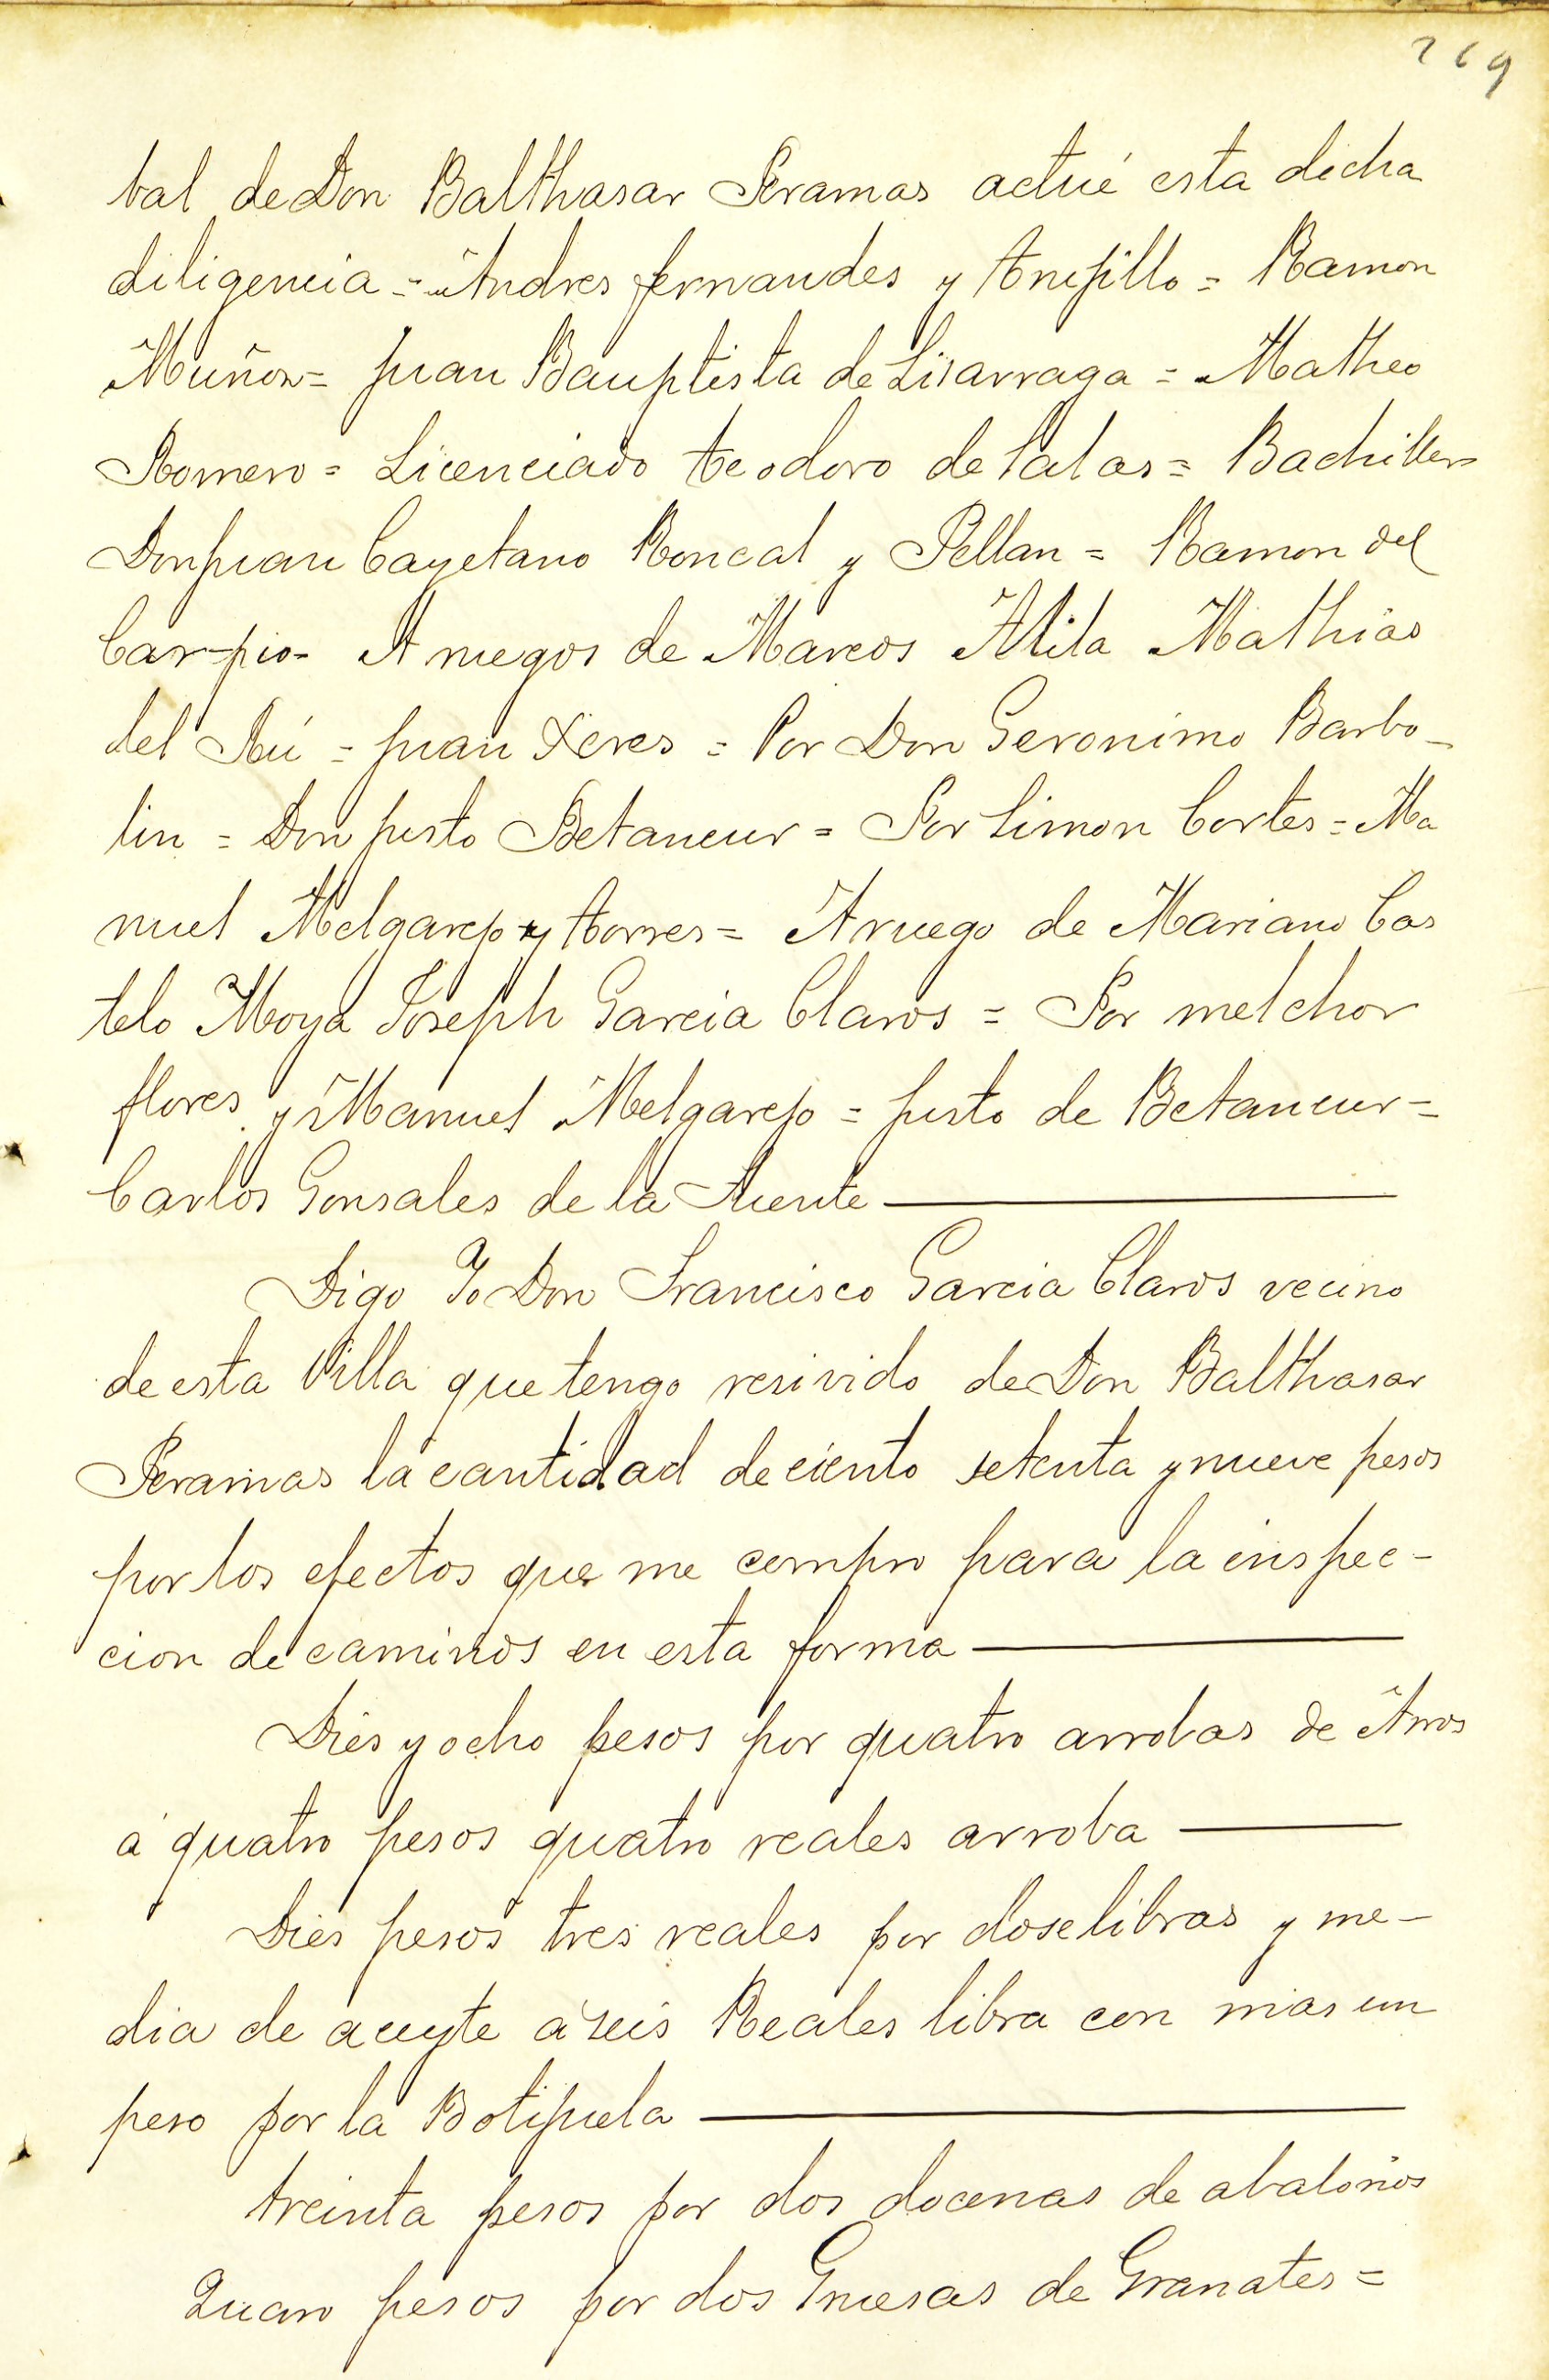 269
bal de Don Balthasar Peramas actué esta dicha
diligencia = Andres fernandes y Trujillo = Ramon
Muños = Juan Bauptista de Lisarraga = Matheo
Romero = Licenciado Teodoro de Salas = Bachiller
Don Juan Cayetano Roncal y Pellan = Ramon del
Carpio - A ruegos de Marcos Mathias
del = Juan Xeres = Por Don Geronimo Barbo-
lin = Don Justo Betancur = Por Simon Cortes = Ma
nuel Melgarejo y Torres = A ruego de Mariano Cas
telo Moya Joseph Garcia Claros = Por melchor
flores y Manuel Melgarejo = Justo de Betancur =
Carlos Gonsales de la Fuente
Digo Yo Don Francisco Garcia Claros vecino
de esta Villa que tengo resivido de Don Balthasar
Peramas la cantidad de ciento setenta y nueve pesos
por los efectos que me compro para la inspec-
cion de caminos en esta forma
Dies y ocho pesos por quatro arrobas de Arros
á quatro pesos quatro reales arroba
Dies pesos tres reales por dose libras y me-
dia de aceyte á seis Reales libra con mas un
peso por la Botijuela
treinta pesos por dos docenas de abalorios
Quatro pesos por dos Gruesas de Granates =